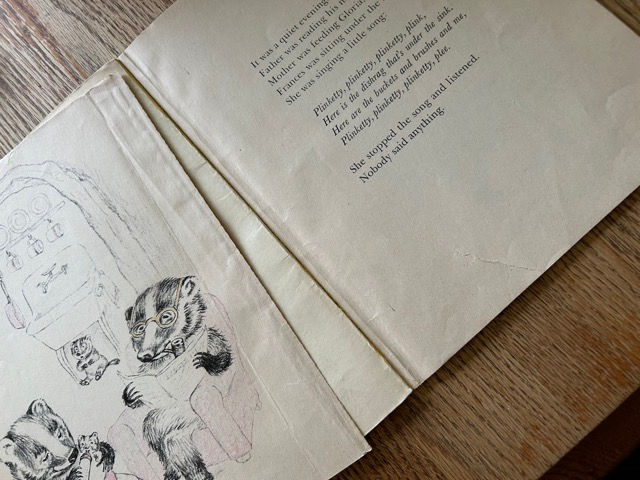 It was a quiet evening
Father was reading his n
Mother was feeding Gloria
Frances was sitting under the s
She was singing a little song:
Plinketty, plinketty, plinketty, plink,
Here is the dishrag that's under the sink.
Here are the buckets and brushes and me,
Plinketty, plinketty, plinketty, plee.
She stopped the song and listened.
Nobody said anything.